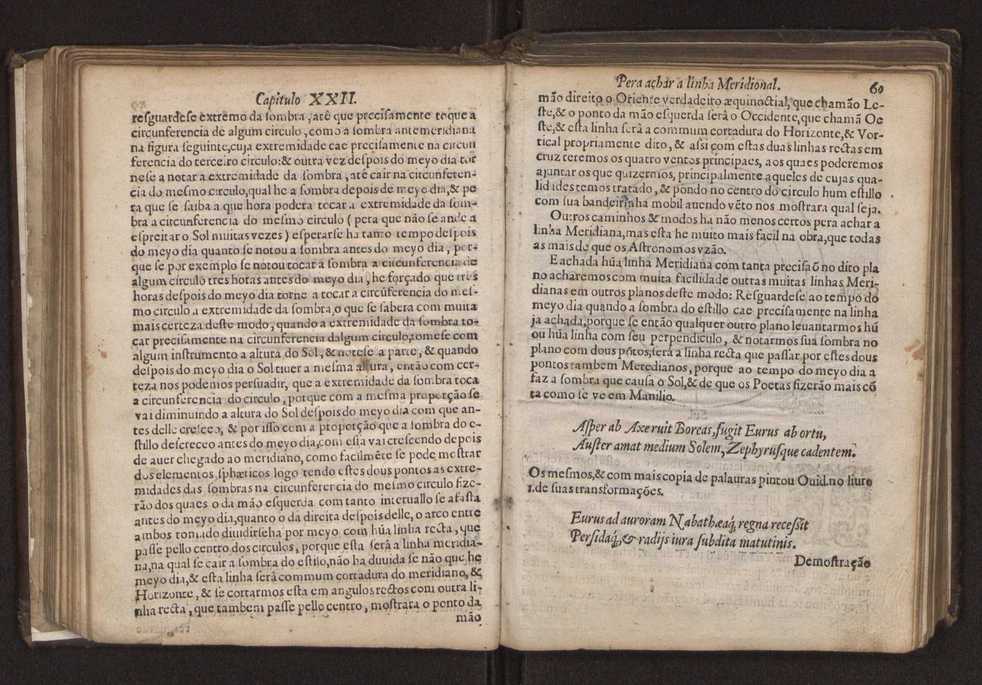 Capitulo XXII.
resguardese extremo da sombra, até que precisamente toque a
circunferencia de algum circulo, como a sombra antemeridiana
na figura seguinte, cuja extremidade cae precisamente na circun
ferencia do terceiro circulo: & outra vez despois do meyo dia tor
nese a notar a extremidade da sombra, até cair na circunferen-
cia do mesmo circulo, qual he a sombra depois de meyo dia, & pe
ra que se saiba a que hora podera tocar a extremidade da som-
bra a circunferencia do mesmo circulo (pera que não se ande a
espreitar o Sol muitas vezes) esperarse ha tanto tempo despois
do meyo dia quanto se notou a sombra antes do meyo dia, por-
que se por exemplo se notou tocar a sombra a circunferencia de
algum circulo tres horas antes do meyo dia, he forçado que tres
horas despois do meyo dia torne a tocar a circũferencia do mes-
mo circulo a extremidade da sombra, o que se sabera com muita
mais certeza deste modo, quando a extremidade da sombra to-
car precisamente na circunferencia dalgum circulo, tomese com
algum instrumento a altura do Sol, & notese a parte, & quando
despois do meyo dia o Sol tiuer a mesma altura, então com cer-
teza nos podemos persuadir, que a extremidade da sombra toca
a circunferencia do circulo, porque com a mesma proporção se
vai diminuindo a altura do Sol despois do meyo dia com que an-
tes delle cresceo, & por isso com a proporção que a sombra do e-
stillo descreceo antes do meyo dia, com essa vai crescendo depois
de auer chegado ao meridiano, como facilmẽte se pode mostrar
dos elementos sphæricos logo tendo estes dous pontos as extre-
midades das sombras na circunferencia do mesmo circulo fize-
rão dos quaes o da mão esquerda com tanto interuallo se afasta
antes do meyo dia, quanto o da direita despois delle, o arco entre
ambos tomado diuidirseha por meyo com hũa linha recta, que
passe pello centro dos circulos, porque esta será a linha meridia-
na, na qual se cair a sombra do estilo, não ha duuida se não que he
meyo dia, & esta linha será commum cortadura do meridiano, &
Horizonte, & se cortarmos esta em angulos rectos com outra li-
nha recta, que tambem passe pello centro, mostrara o ponto da
mão
Pera achar a linha Meridional. 60
mão direito o Oriente verdadeiro æquinoctial, que chamão Le-
ste, & o ponto da mão esquerda será o Occidente, que chamã Oe
ste, & esta linha será a commum cortadura do Horizonte, & Vor-
tical propriamente dito, & assi com estas duas linhas rectas em
cruz teremos os quatro ventos principaes, aos quaes poderemos
ajuntar os que quizermos, principalmente aqueles de cujas qua-
lidades temos tratado, & pondo no centro do circulo hum estillo
com sua bandeirinha mobil auendo vẽto nos mostrara qual seja.
Outros caminhos & modos ha não menos certos pera achar a
linha Meridiana, mas esta he muito mais facil na obra, que todas
as mais de que os Astronomos vzão.
E achada hũa linha Meridiana com tanta precisaõ no dito pla
no acharemos com muita facilidade outras muitas linhas Meri-
dianas em outros planos deste modo: Resguardese ao tempo do
meyo dia quando a sombra do estillo cae precisamente na linha
ja achada, porque se então qualquer outro plano leuantarmos hũ
ou hũa linha com seu perpendiculo, & notarmos sua sombra no
plano com dous põtos, será a linha recta que passar por estes dous
pontos tambem Meredianos, porque ao tempo do meyo dia a
faz a sombra que causa o Sol, & de que os Poetas fizerão mais cõ
ta como se ve em Manilio.
Asper ab Axe ruit Boreas, fugit Eurus ab ortu,
Auster amat medium Solem, Zephyrusque cadentem.
Os mesmos, & com mais copia de palauras pintou Ouid. no liuro
1. de suas transformações.
Eurus ad auroram Nabathæaq́, regna recessit
Persidaq́, & radijs iura subdita matutinis.
Demostração